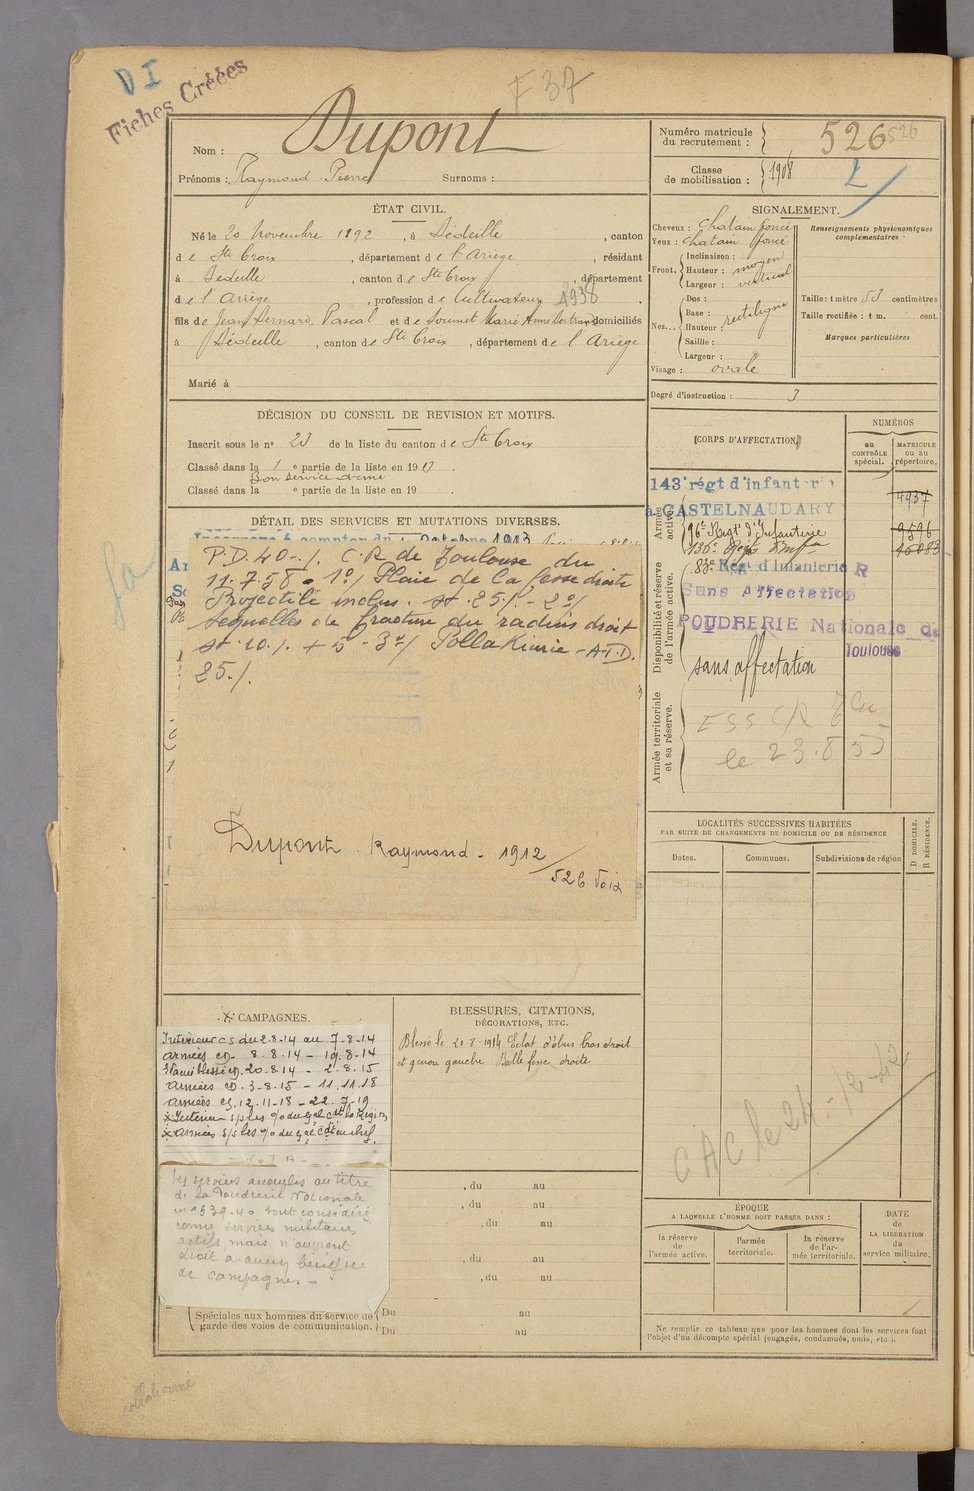 DI
Fiches Créées
F 37
Nom : Dupont
Prénoms : Raymond Pierre Surnoms :
Numéro matricule du recrutement : 526 526
Classe de mobilisation : 1908
ÉTAT CIVIL.
Né le 20 Novembre 1892, à Sédeille, canton
de Ste Croix, département de l'Ariège, résidant
à Sédeille, canton de Ste Croix, département
de l'Ariège, profession de Cultivateur 1938,
fils de Jean Bernard Pascal et de Soumet Marie Anne Bertrande domiciliés
à Sédeille, canton de Ste Croix, département de l'Ariège
Marié à
SIGNALEMENT.
Cheveux : Chatain foncé
Yeux : chatain foncé
Front. Inclinaison :
Hauteur : moyen
Largeur : vertical
Nez... Dos :
Base : rectiligne
Hauteur :
Saillie :
Largeur :
Visage : ovale
Renseignements physionomiques complémentaires :
Taille : 1 mètre 53 centimètres
Taille rectifiée : 1 m. cent.
Marques particulières
Degré d'instruction : 3
DÉCISION DU CONSEIL DE REVISION ET MOTIFS.
Inscrit sous le n° 23 de la liste du canton de Ste Croix
Classé dans la 1e partie de la liste en 1913.
Bon service armé
Classé dans la e partie de la liste en 19 .
DÉTAIL DES SERVICES ET MUTATIONS DIVERSES.
P.D. 40 % C.R de Toulouse du
11.7.58 - 1°/ Plaie de la fesse droite
Projectile inclus. st. 25 % - 2°/
sequelles de fracture du radius droit
st. 10 % + 5 - 3°/ Pollakiurie - A.T.D.
25 %
Dupont Raymond - 1912
526 Foix
CORPS D'AFFECTATION.
NUMÉROS
au CONTRÔLE spécial.
MATRICULE ou au répertoire.
Armée active.
143e régt d'infanterie
à CASTELNAUDARY
4937
96e Regt d'Infanterie
9596
136e Regt d'Infie
Disponibilité et réserve de l'armée active.
83e Régt d'Infanterie R
Sans Affectation
POUDRERIE Nationale de
Toulouse
sans affectation
Armée territoriale et sa réserve.
le 23.8 53
LOCALITÉS SUCCESSIVES HABITÉES
PAR SUITE DE CHANGEMENTS DE DOMICILE OU DE RÉSIDENCE
Dates.
Communes.
Subdivisions de région
D DOMICILE.
R RÉSIDENCE.
CAMPAGNES.
Intérieur cs du 2.8.14 au 7-8-14
armées cd - 8.8.14 - 19.8-14
20.8.14 - 2.8.15
armées cd. 3-8.15 - 11.11.18
armées cs. 12.11-18 - 22.7-19
BLESSURES, CITATIONS,
DÉCORATIONS, ETC.
Blessé le 20-8-1914 Eclat d'obus bras droit
et genou gauche Balle fesse droite
NOTA
les services accomplis au titre
de la Poudrerie Nationale
en 1939-40 sont considérés
comme services militaires
actifs, mais n'ouvrent
droit à aucun bénéfice
de campagnes -
CAC le 24-12-42
, du au
, du au
, du au
, du au
, du au
Spéciales aux hommes du service de garde des voies de communication.
Du au
Du au
ÉPOQUE
A LAQUELLE L'HOMME DOIT PASSER DANS :
la réserve de l'armée active.
l'armée territoriale.
la réserve de l'armée territoriale.
DATE de LA LIBÉRATION du service militaire.
Ne remplir ce tableau que pour les hommes dont les services font
l'objet d'un décompte spécial (engagés, condamnés, omis, etc.).
collationné